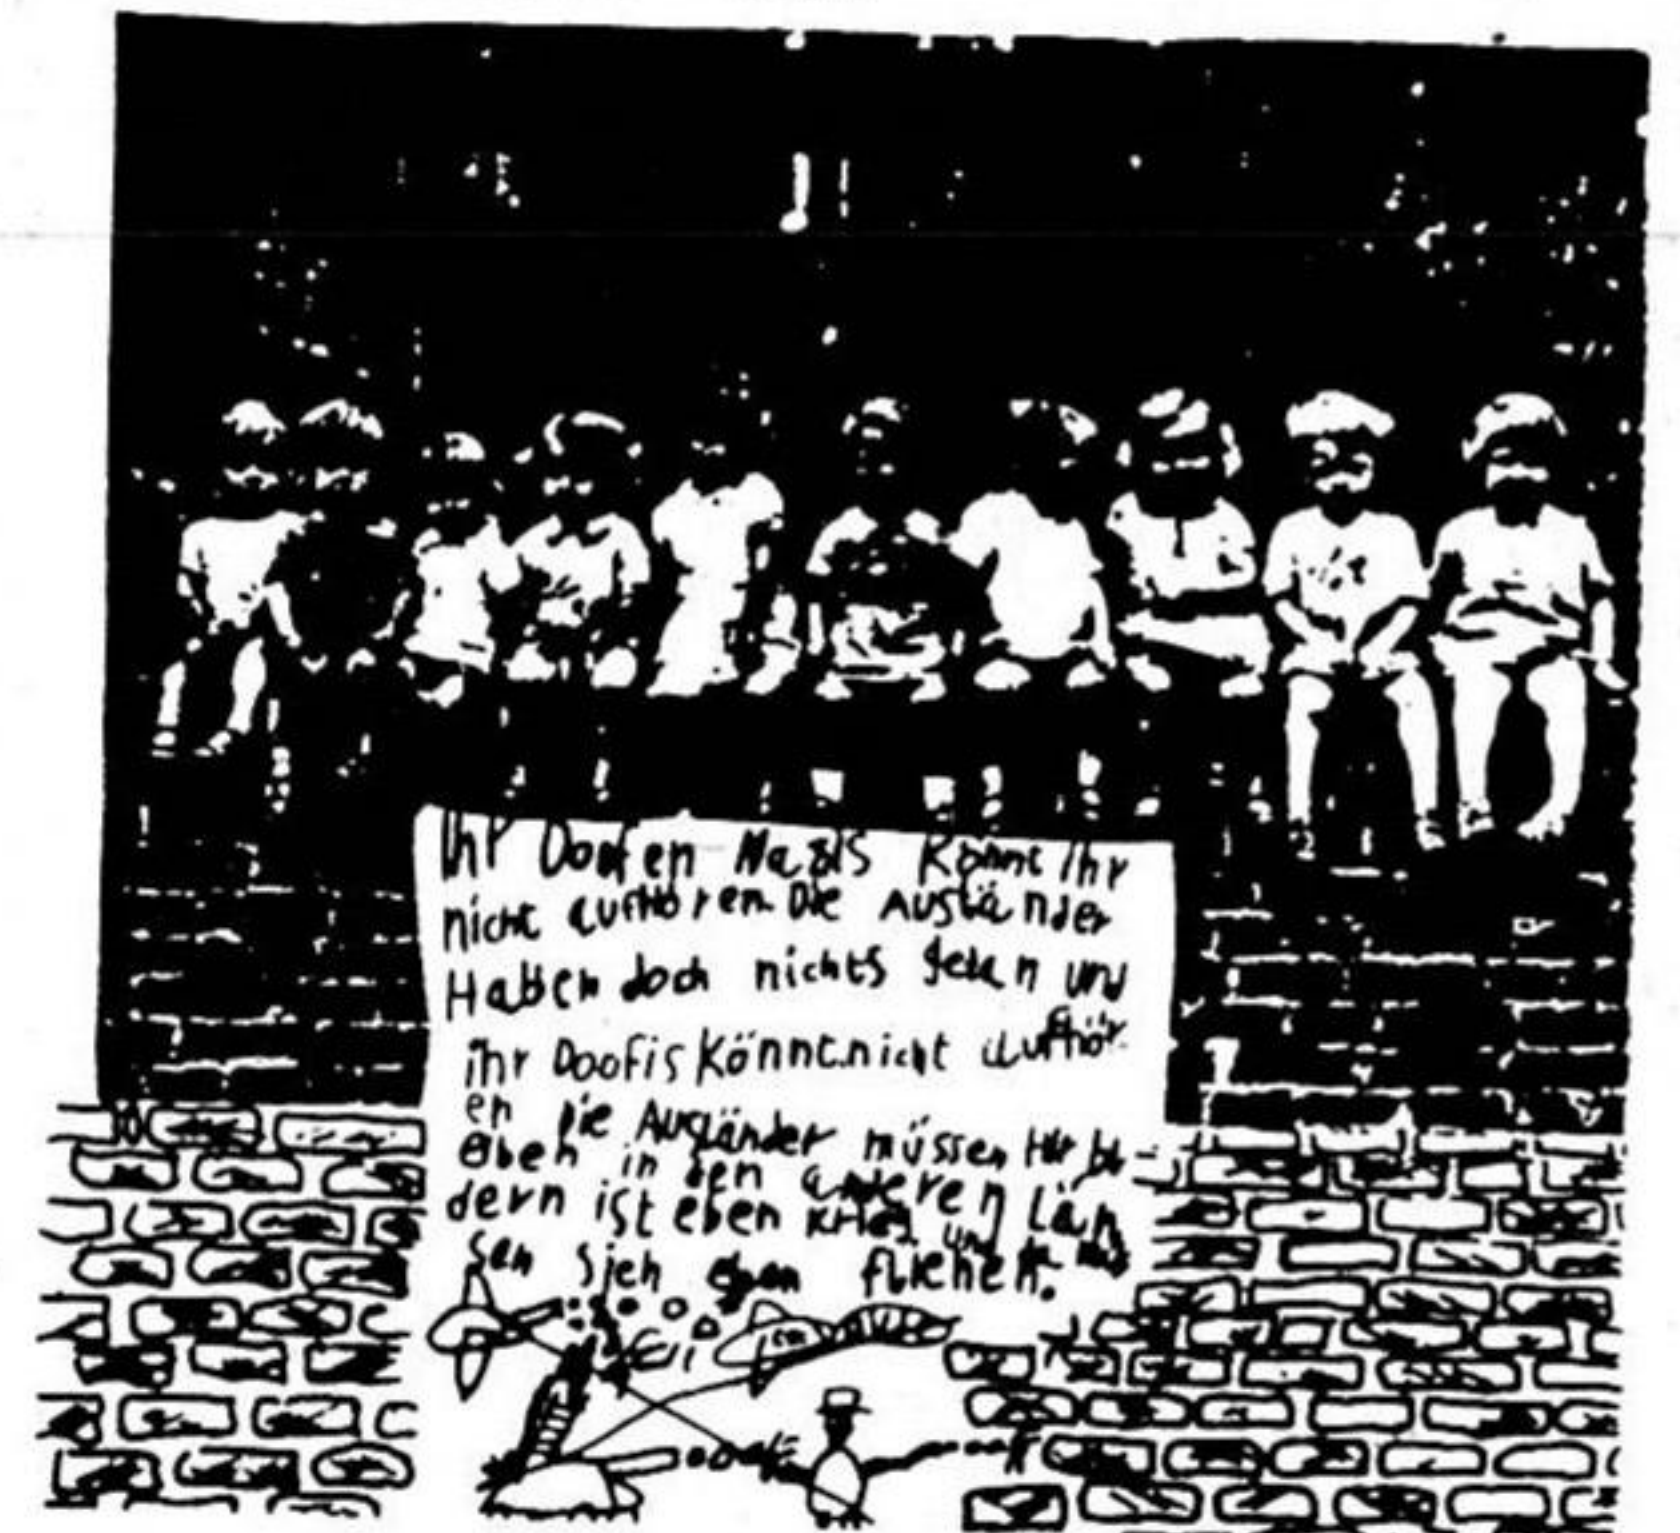 Ihr Doofen Nazis Könnt Ihr
nicht aufhören. Die Ausländer
Haben doch nichts getan und
ihr Doofis Könnt nicht aufhör
en Die Ausländer müssen Hir bl-
eiben in den anderen Län
dern ist eben Krieg und da müs
sen sieh eben fliehen.